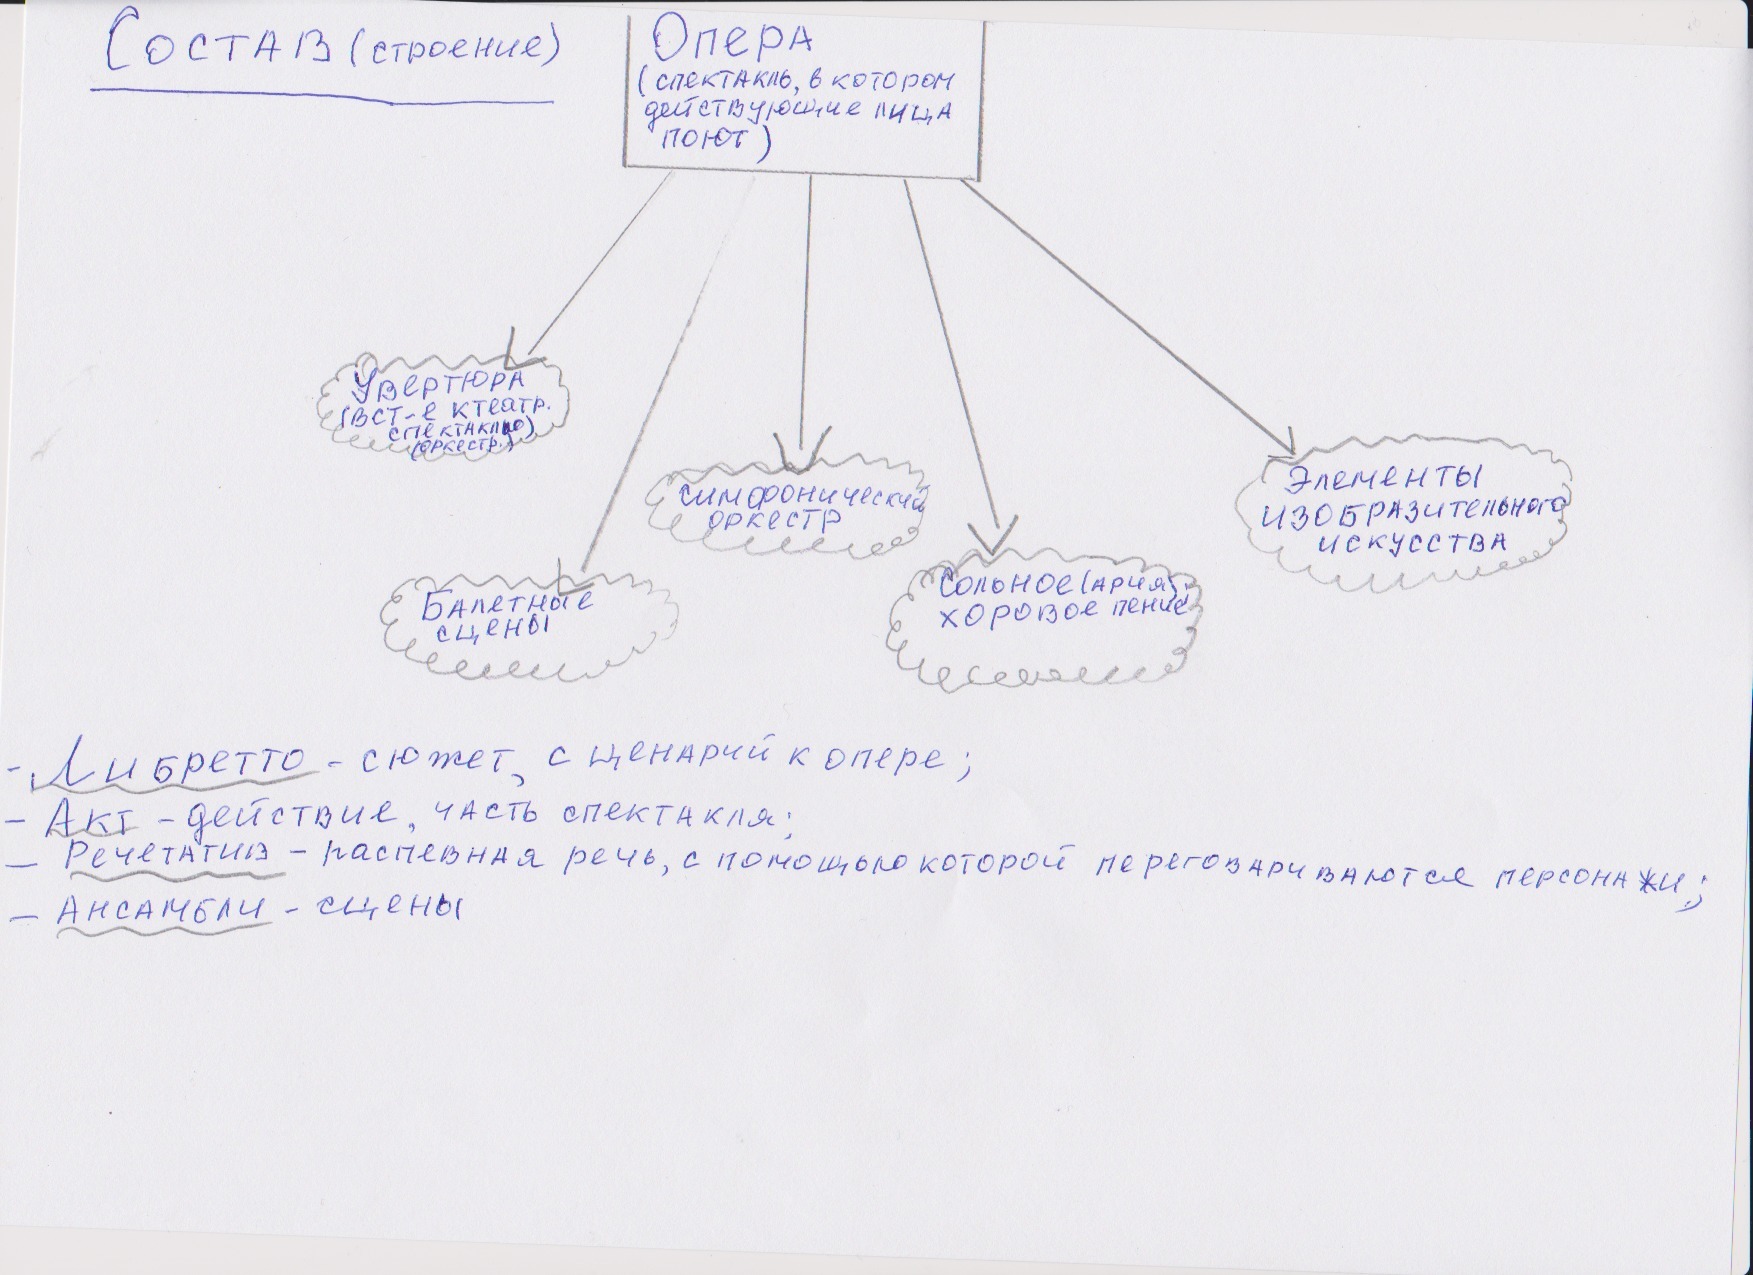 Состав (строение)
Опера
(спектакль, в котором
действующие лица
поют)
Увертюра
(вст-е к театр.
спектаклю)
(оркестр.)
Балетные
сцены
симфонический
оркестр
Сольное (ария),
хоровое пение
Элементы
изобразительного
искусства
- Либретто - сюжет, сценарий к опере;
- Акт - действие, часть спектакля;
- Речетатив - распевная речь, с помощью которой переговариваются персонажи;
- Ансамбли - сцены